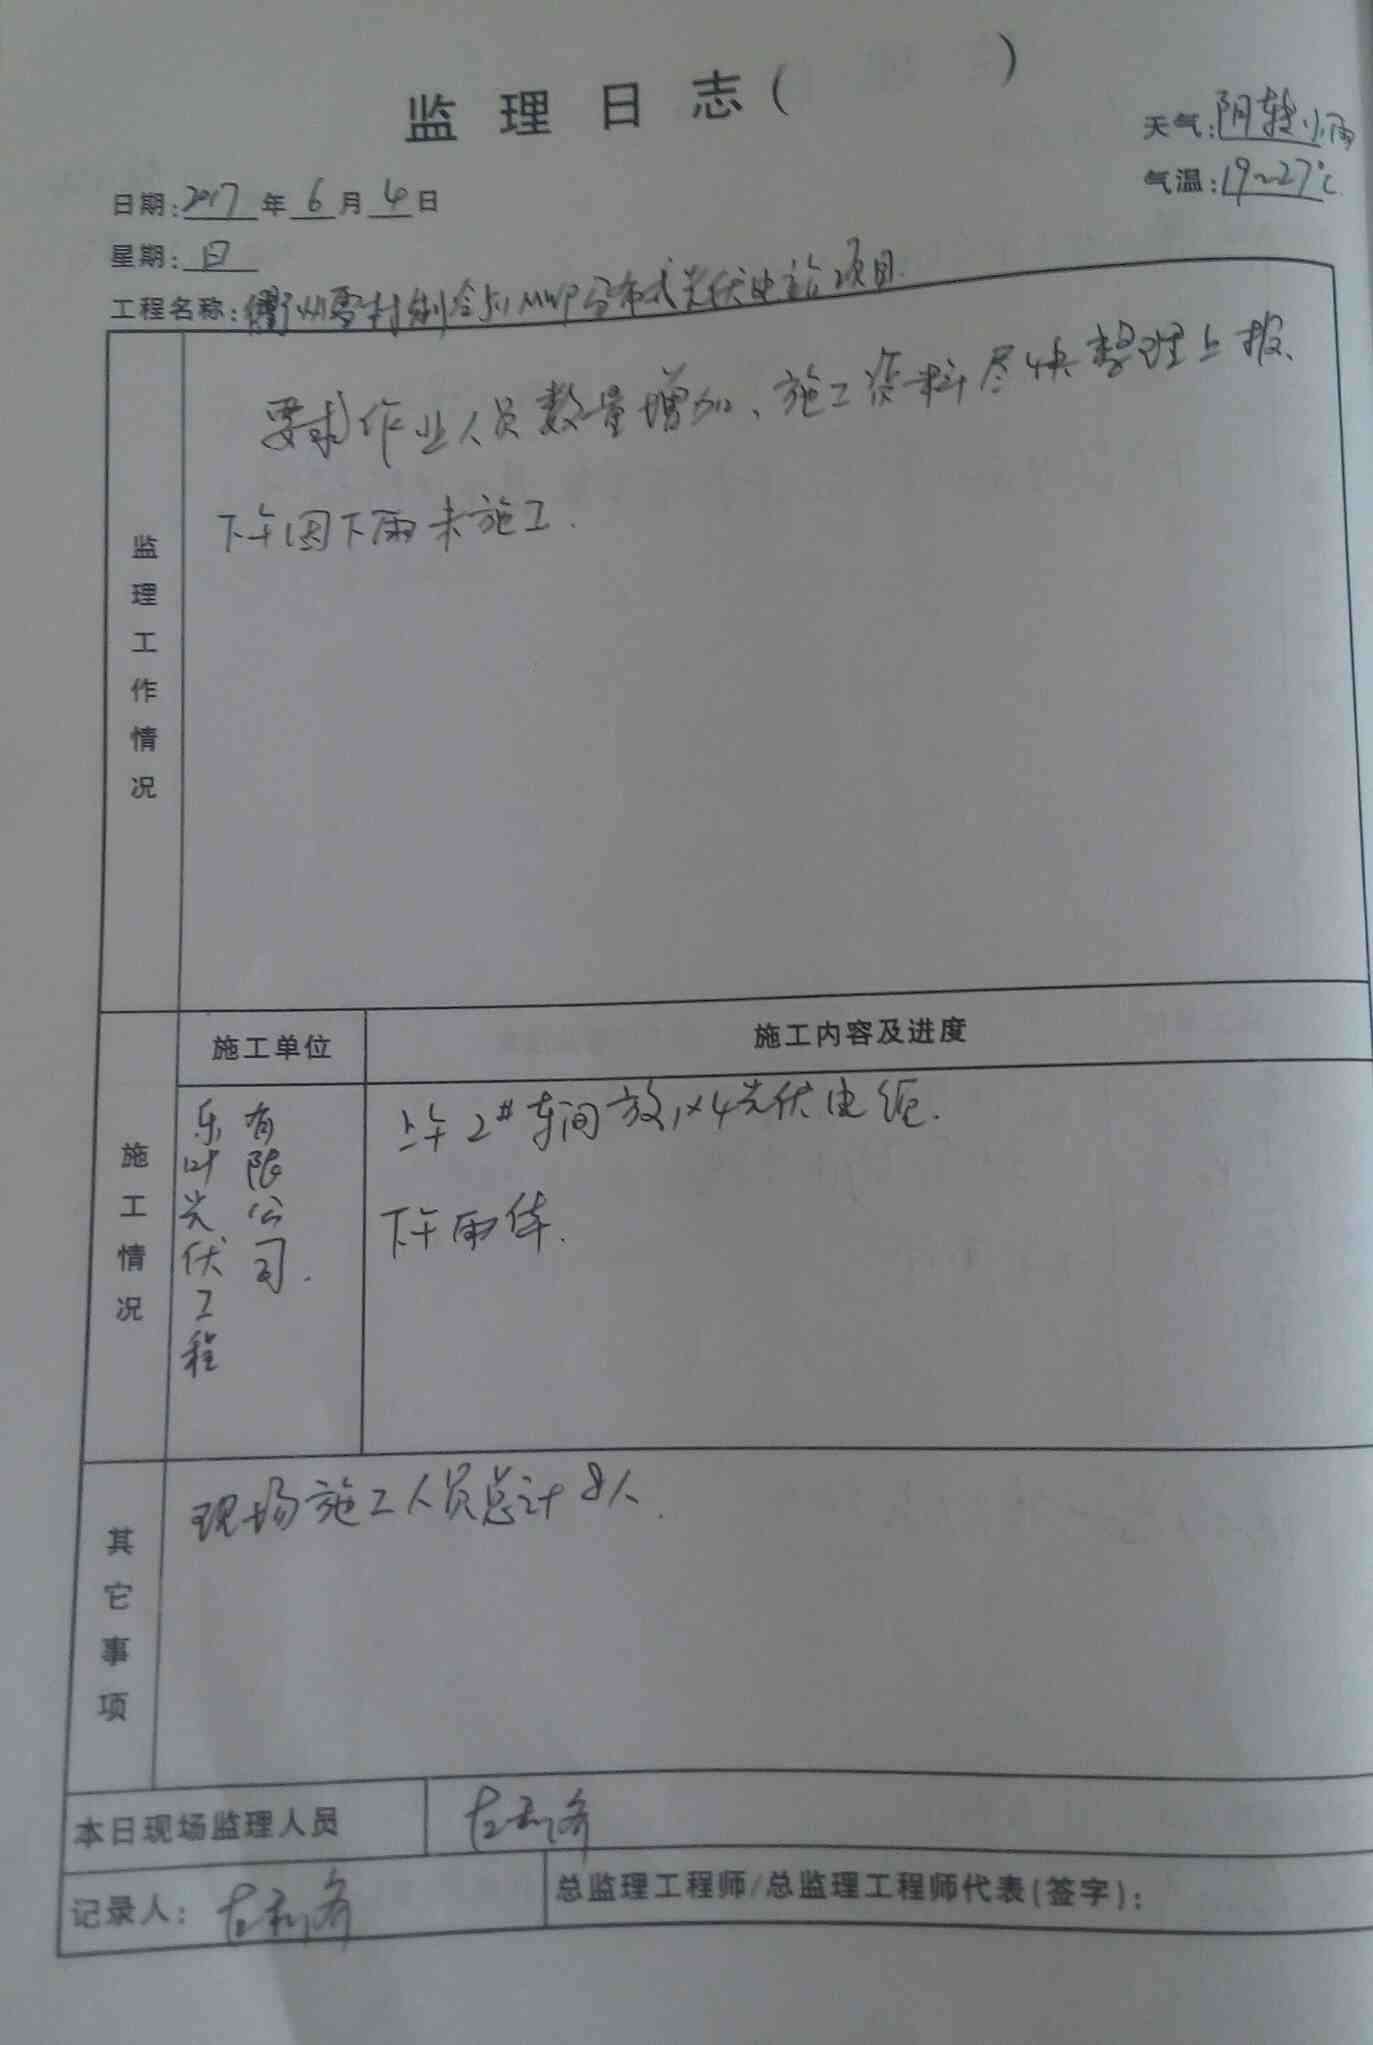 监理日志(          )
天气:阴转小雨
日期:2017年6月4日
气温:19~27℃
星期:日
工程名称:衢州雪村制冷5.1MWP分布式光伏电站项目.
监理工作情况
要求作业人员数量增加、施工资料尽快整理上报、
下午因下雨未施工.
施工情况
施工单位
施工内容及进度
乐叶光伏工程
有限公司.
上午2#车间放1×4光伏电缆.
下午雨休.
其它事项
现场施工人员总计8人.
本日现场监理人员
记录人:
总监理工程师/总监理工程师代表(签字):